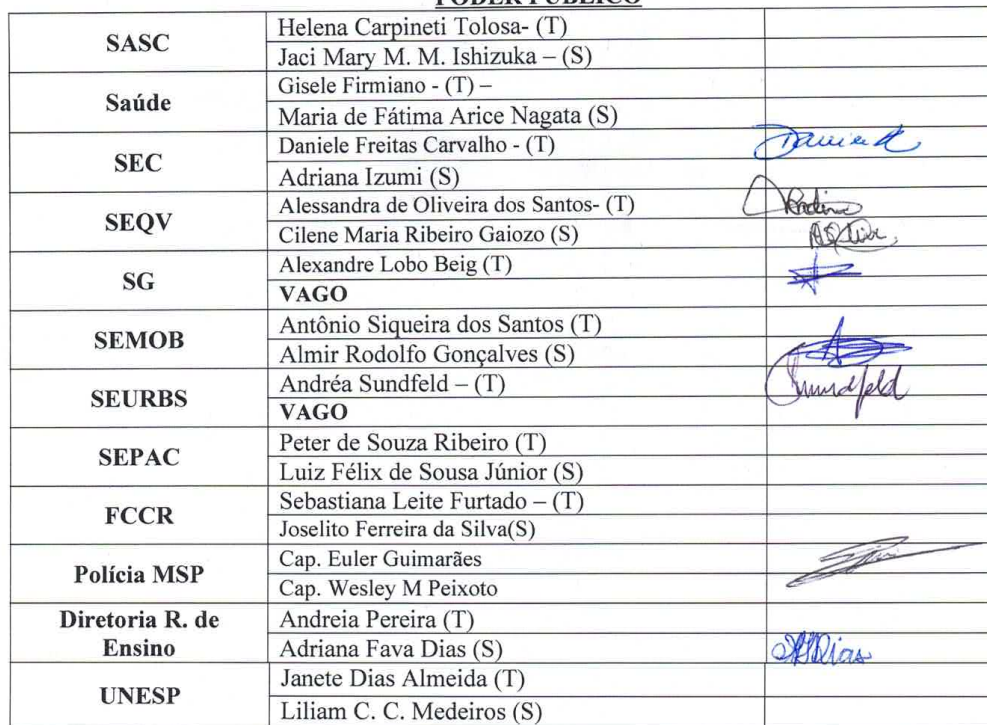 PODER PÚBLICO
SASC
Helena Carpineti Tolosa- (T)
Jaci Mary M. M. Ishizuka – (S)
Saúde
Gisele Firmiano - (T) –
Maria de Fátima Arice Nagata (S)
SEC
Daniele Freitas Carvalho - (T)
Adriana Izumi (S)
SEQV
Alessandra de Oliveira dos Santos- (T)
Cilene Maria Ribeiro Gaiozo (S)
SG
Alexandre Lobo Beig (T)
VAGO
SEMOB
Antônio Siqueira dos Santos (T)
Almir Rodolfo Gonçalves (S)
SEURBS
Andréa Sundfeld – (T)
Sundfeld
VAGO
SEPAC
Peter de Souza Ribeiro (T)
Luiz Félix de Sousa Júnior (S)
FCCR
Sebastiana Leite Furtado – (T)
Joselito Ferreira da Silva(S)
Polícia MSP
Cap. Euler Guimarães
Cap. Wesley M Peixoto
Diretoria R. de
Ensino
Andreia Pereira (T)
Adriana Fava Dias (S)
UNESP
Janete Dias Almeida (T)
Liliam C. C. Medeiros (S)